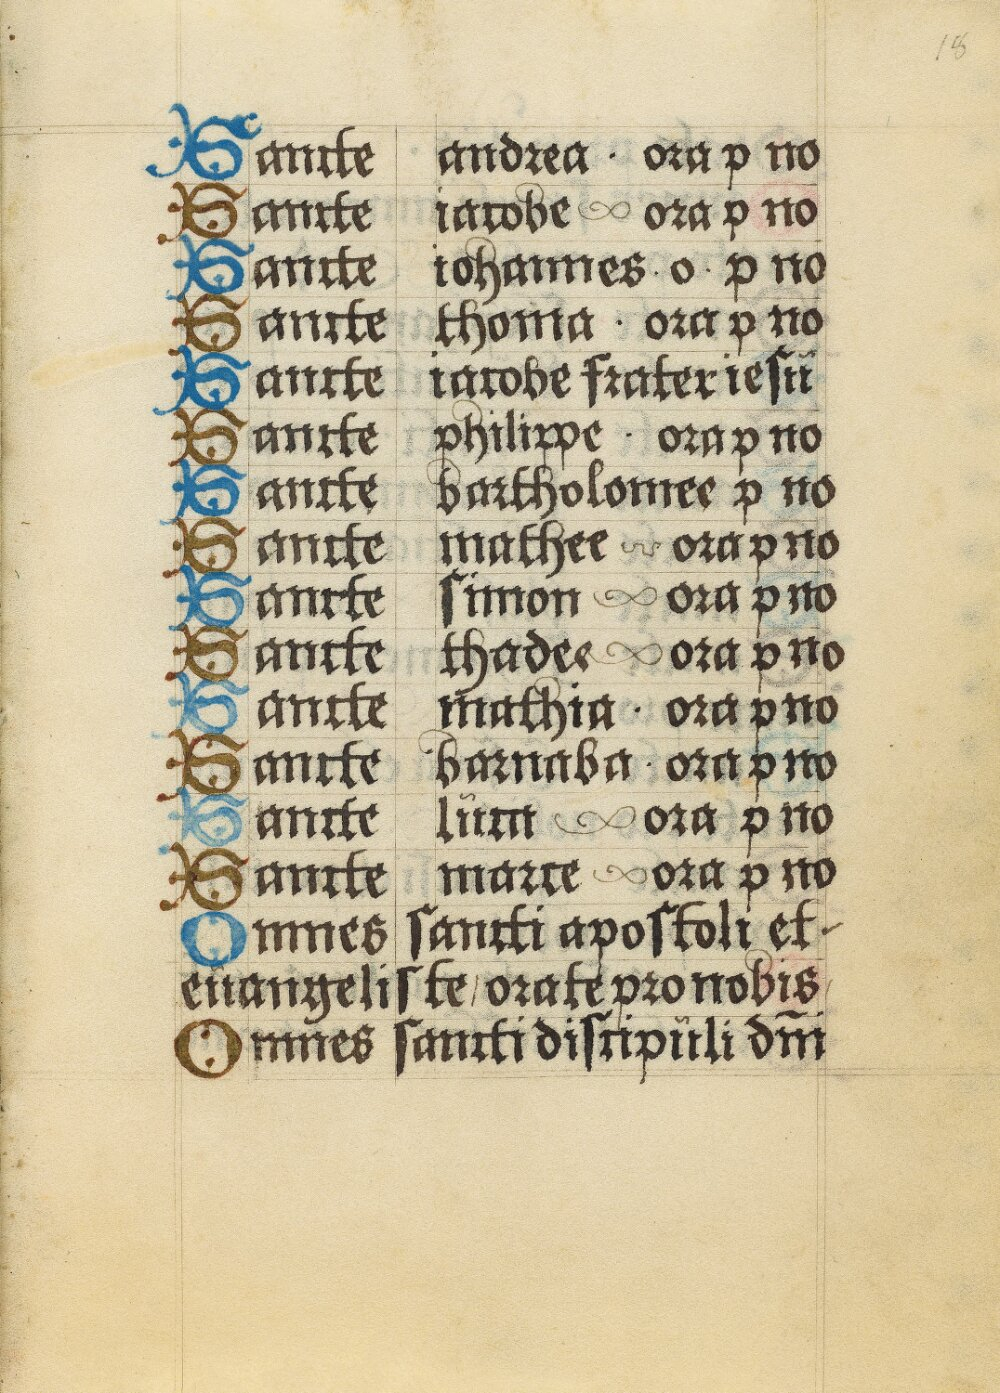 18
Sancte andrea · ora p no
Sancte iacobe ora p no
Sancte iohannes · o · p no
Sancte thoma · ora p no
Sancte iacobe frater iesu
Sancte philippe · ora p no
Sancte bartholomee p no
Sancte mathee ora p no
Sancte simon ora p no
Sancte thadee ora p no
Sancte mathia · ora p no
Sancte barnaba · ora p no
Sancte luca ora p no
Sancte marce ora p no
Omnes sancti apostoli et
euangeliste / orate pro nobis
Omnes sancti discipuli dm̅i